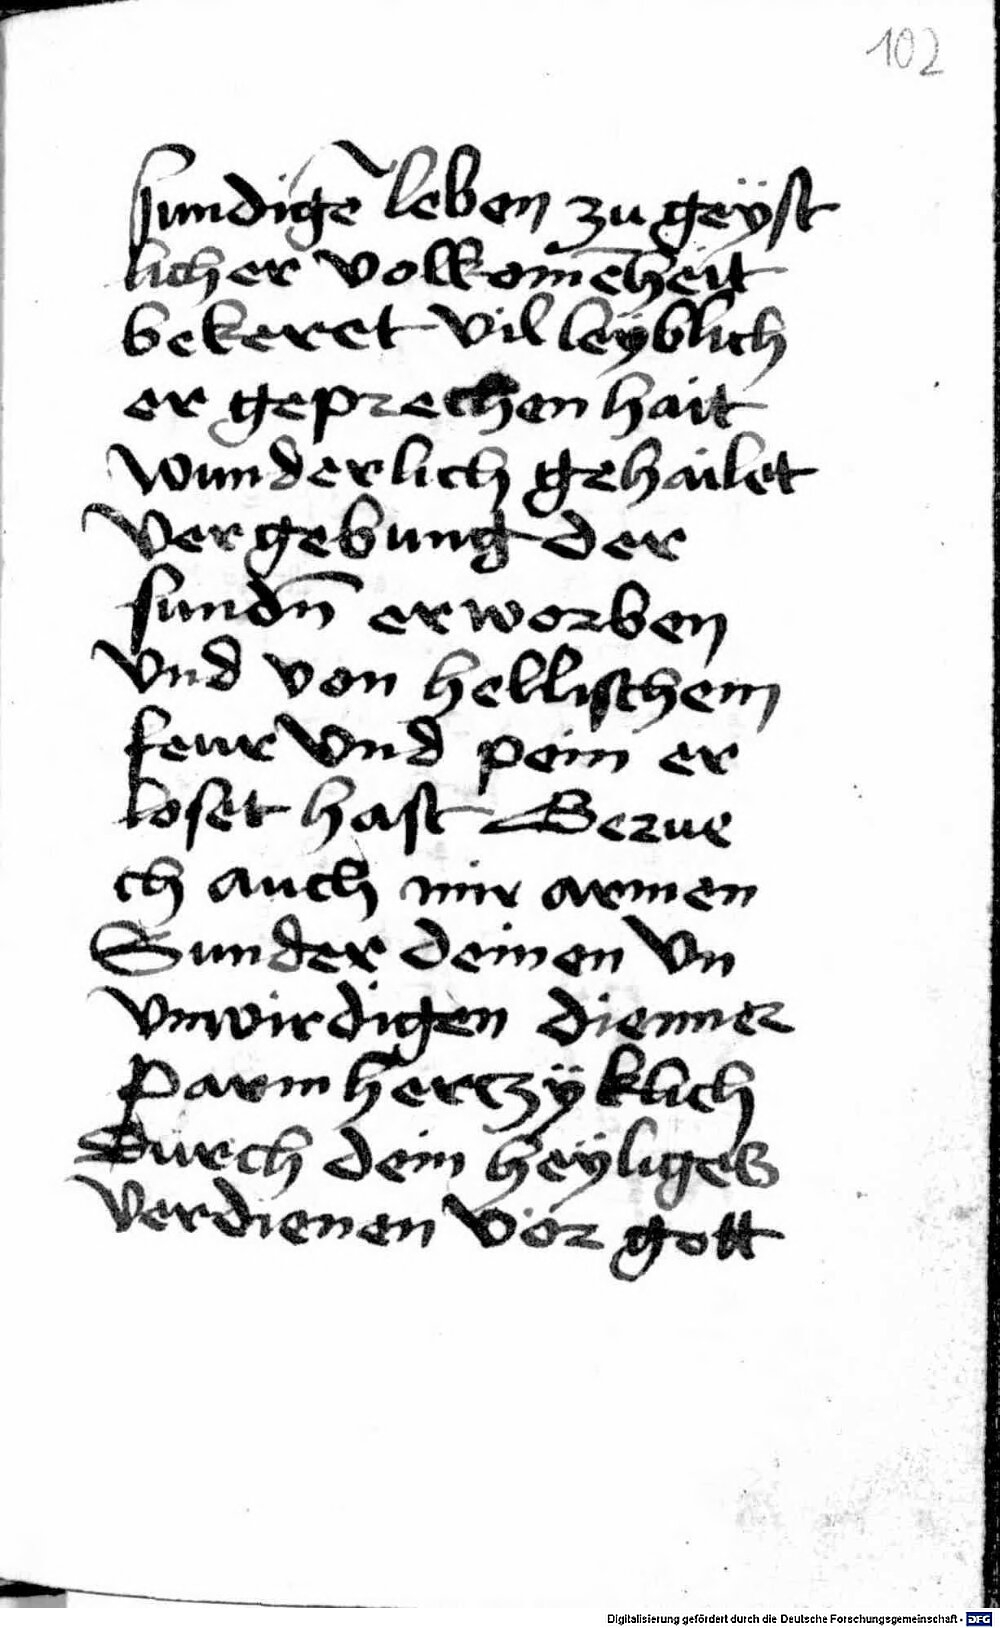 102
sundigē leben zu geÿst
licher volkomēheit
bekeret vil leÿblich
er geprechen hait
wunderlich gehailet
vergebung der
sundn̄ erworben
vnd von hellischem
feur vnd pein er
loset hast Gerue
ch auch mir armen
Sunder deinen vn
vnwirdigen dienner
parmhertzÿklich
Durch dein heÿliges
verdienen vor gott
Digitalisierung gefördert durch die Deutsche Forschungsgemeinschaft - DFG